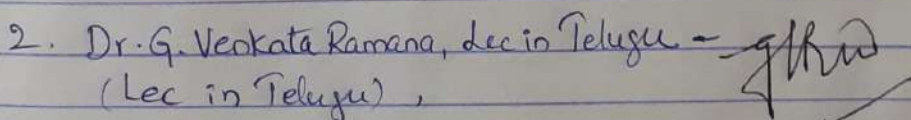 2. Dr. G. Venkata Ramana, Lec in Telugu -
(Lec in Telugu),